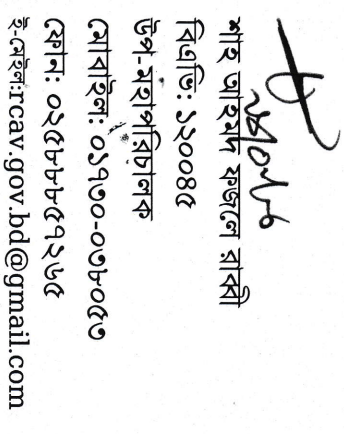 শাহ আহমদ ফজলে রাব্বী
বিএভি: ১২০০৪৫
উপ-মহাপরিচালক
মোবাইল: ০১৭৩০-০৩৮০৫৩
ফোন: ০২৫৮৮৮৫৭২৬৫
ই-মেইল:rcav.gov.bd@gmail.com